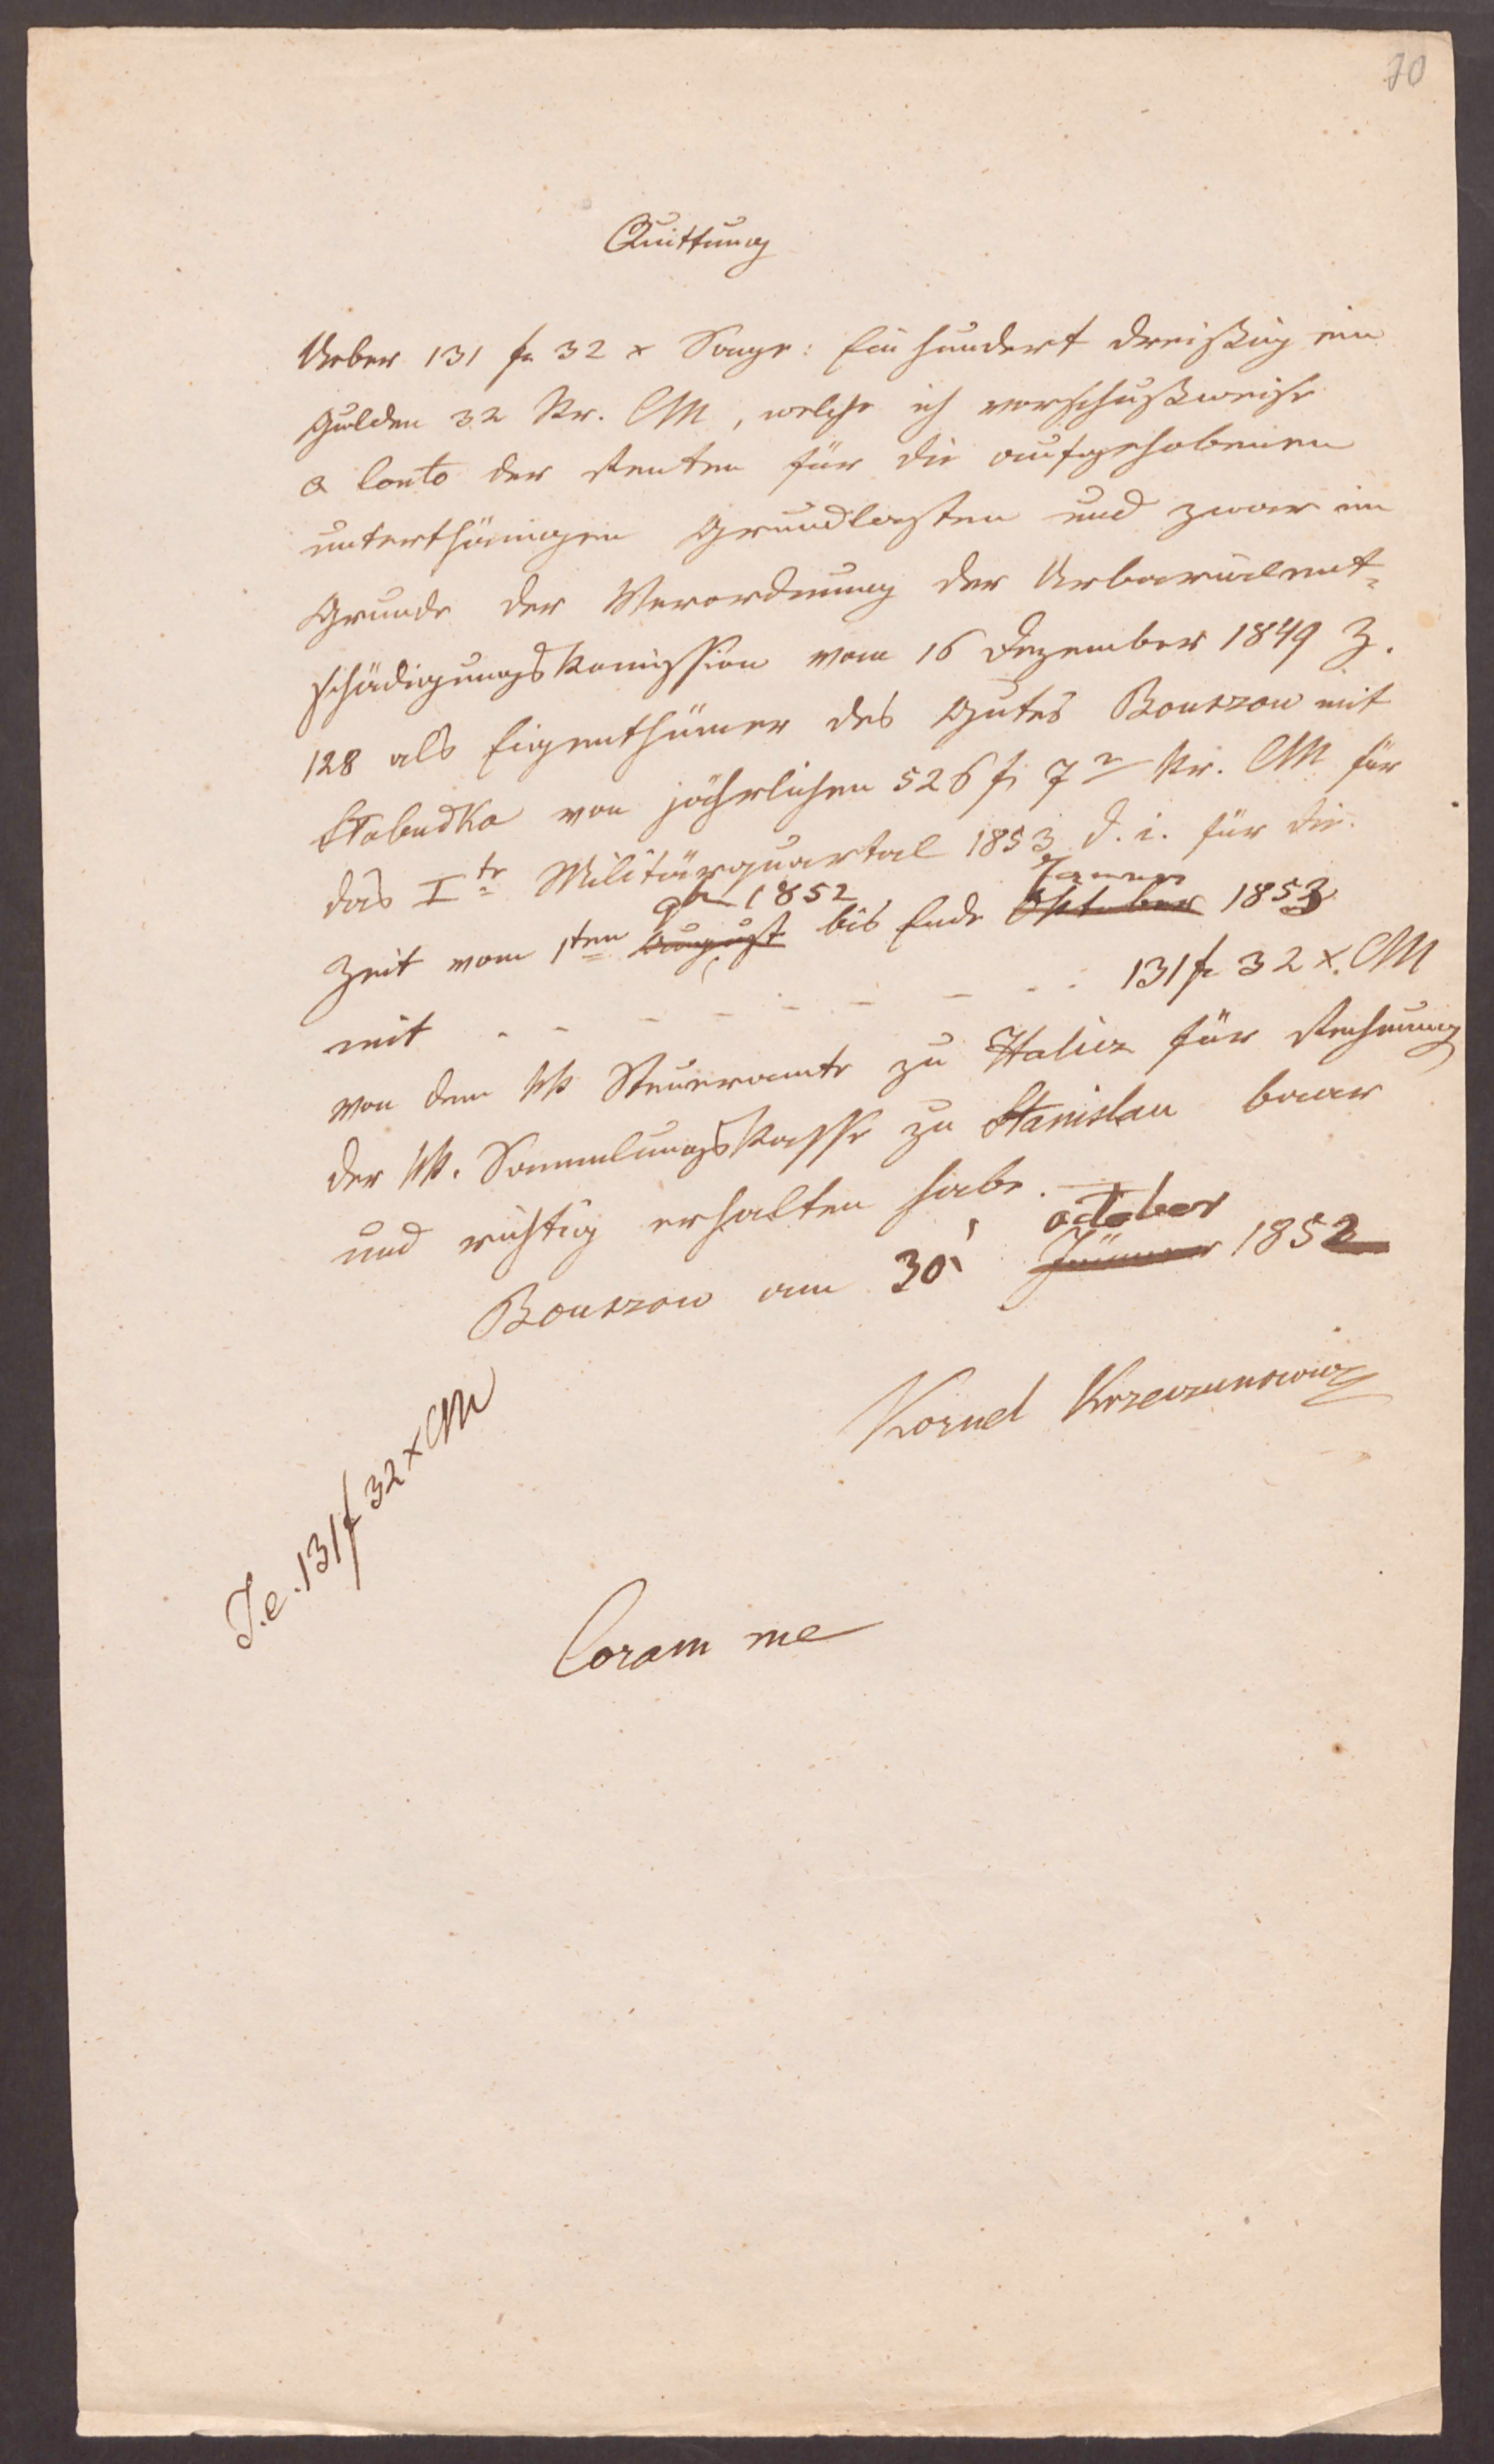 70
Quittung
Ueber 131 fr 32 x Sage: Ein hundert dreißig ein
Gulden 32 Kr. CM, welche ich vorschußweise
a Conto der Renten für die aufgehobenen
unterthänigen Grundlasten und zwar im
Grunde der Verordnung der Urbarialent-
schädigungskommission vom 16 Dezember 1849 Z.
128 als Eigenthümer des Gutes Bouszow mit
Slobudka von jährlichen 526 f 7 Kr. CM für
das I te Militärquartal 1853 d. i. für die
9b 1852 Janner
Zeit vom 1ten August bis Ende Oktober 1853
mit - - - - - - - - 131 fr 32 x. CM
von dem kk Steueramte zu Halicz für Rechnung
der kk. Sammlungskasse zu Stanislau baar
und richtig erhalten habe. —
october
Bouszow am 30 Jänner 1852
Kornel Krzeczunowicz
I.e. 131 f 32 x CM
Coram me